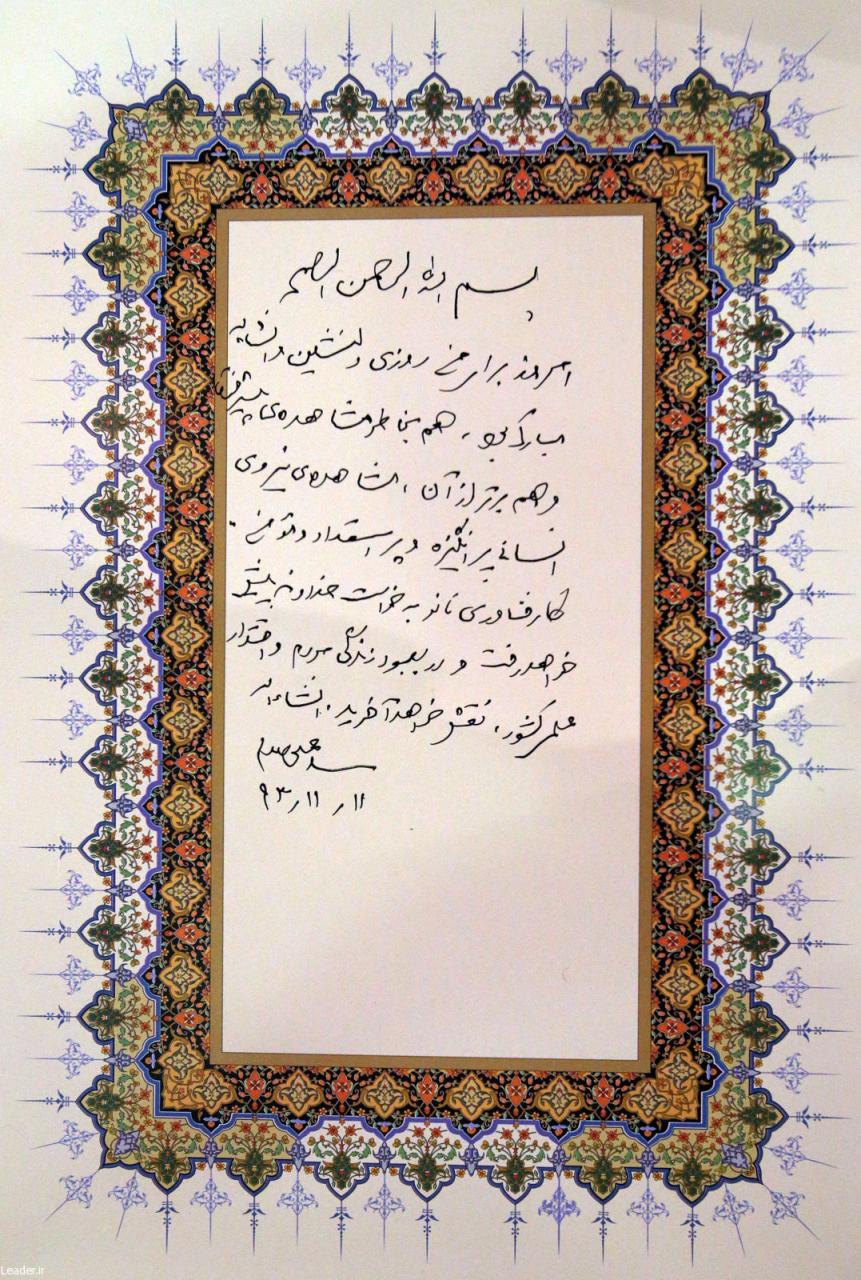 بسم الله الرحمن الرحیم
امروز برای من روزی دلنشین و انشاءالله
مبارک بود، هم بخاطر مشاهده‌ی پیشرفتها
و هم برتر از آن، مشاهده‌ی نیروی
انسانی پر انگیزه و پر استعداد و مؤمن.
کار فناوری نانو به خواست خداوند پیش
خواهد رفت و در بهبود زندگی مردم و اقتدار
علمی کشور، نقش خواهد آفرید. انشاءالله
سید علی خامنه‌ای
۱۱ر۱۱ر۹۳
Leader.ir